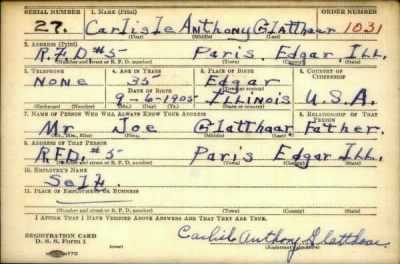 SERIAL NUMBER 1. NAME (Print) ORDER NUMBER
27. Carlisle Anthony Glatthaar 1031
(First) (Middle) (Last)
2. ADDRESS (Print)
R.F.D #5 Paris, Edgar, Ill.
(Number and street or R. F. D. number) (Town) (County) (State)
3. TELEPHONE 4. AGE IN YEARS 5. PLACE OF BIRTH 6. COUNTRY OF CITIZENSHIP
None 35 Edgar
DATE OF BIRTH (Town or county)
9-6-1905 Illinois U.S.A.
(Exchange) (Number) (Mo.) (Day) (Yr.) (State or country)
7. NAME OF PERSON WHO WILL ALWAYS KNOW YOUR ADDRESS 8. RELATIONSHIP OF THAT PERSON
Mr. Joe Glatthaar Father.
(Mr., Mrs., Miss) (First) (Middle) (Last)
9. ADDRESS OF THAT PERSON
R.F.D. #5 Paris Edgar Ill.
(Number and street or R. F. D. number) (Town) (County) (State)
10. EMPLOYER'S NAME
Self.
11. PLACE OF EMPLOYMENT OR BUSINESS
(Number and street or R. F. D. number) (Town) (County) (State)
I AFFIRM THAT I HAVE VERIFIED ABOVE ANSWERS AND THAT THEY ARE TRUE.
REGISTRATION CARD
D. S. S. Form 1
Carlisle Anthony Glatthaar